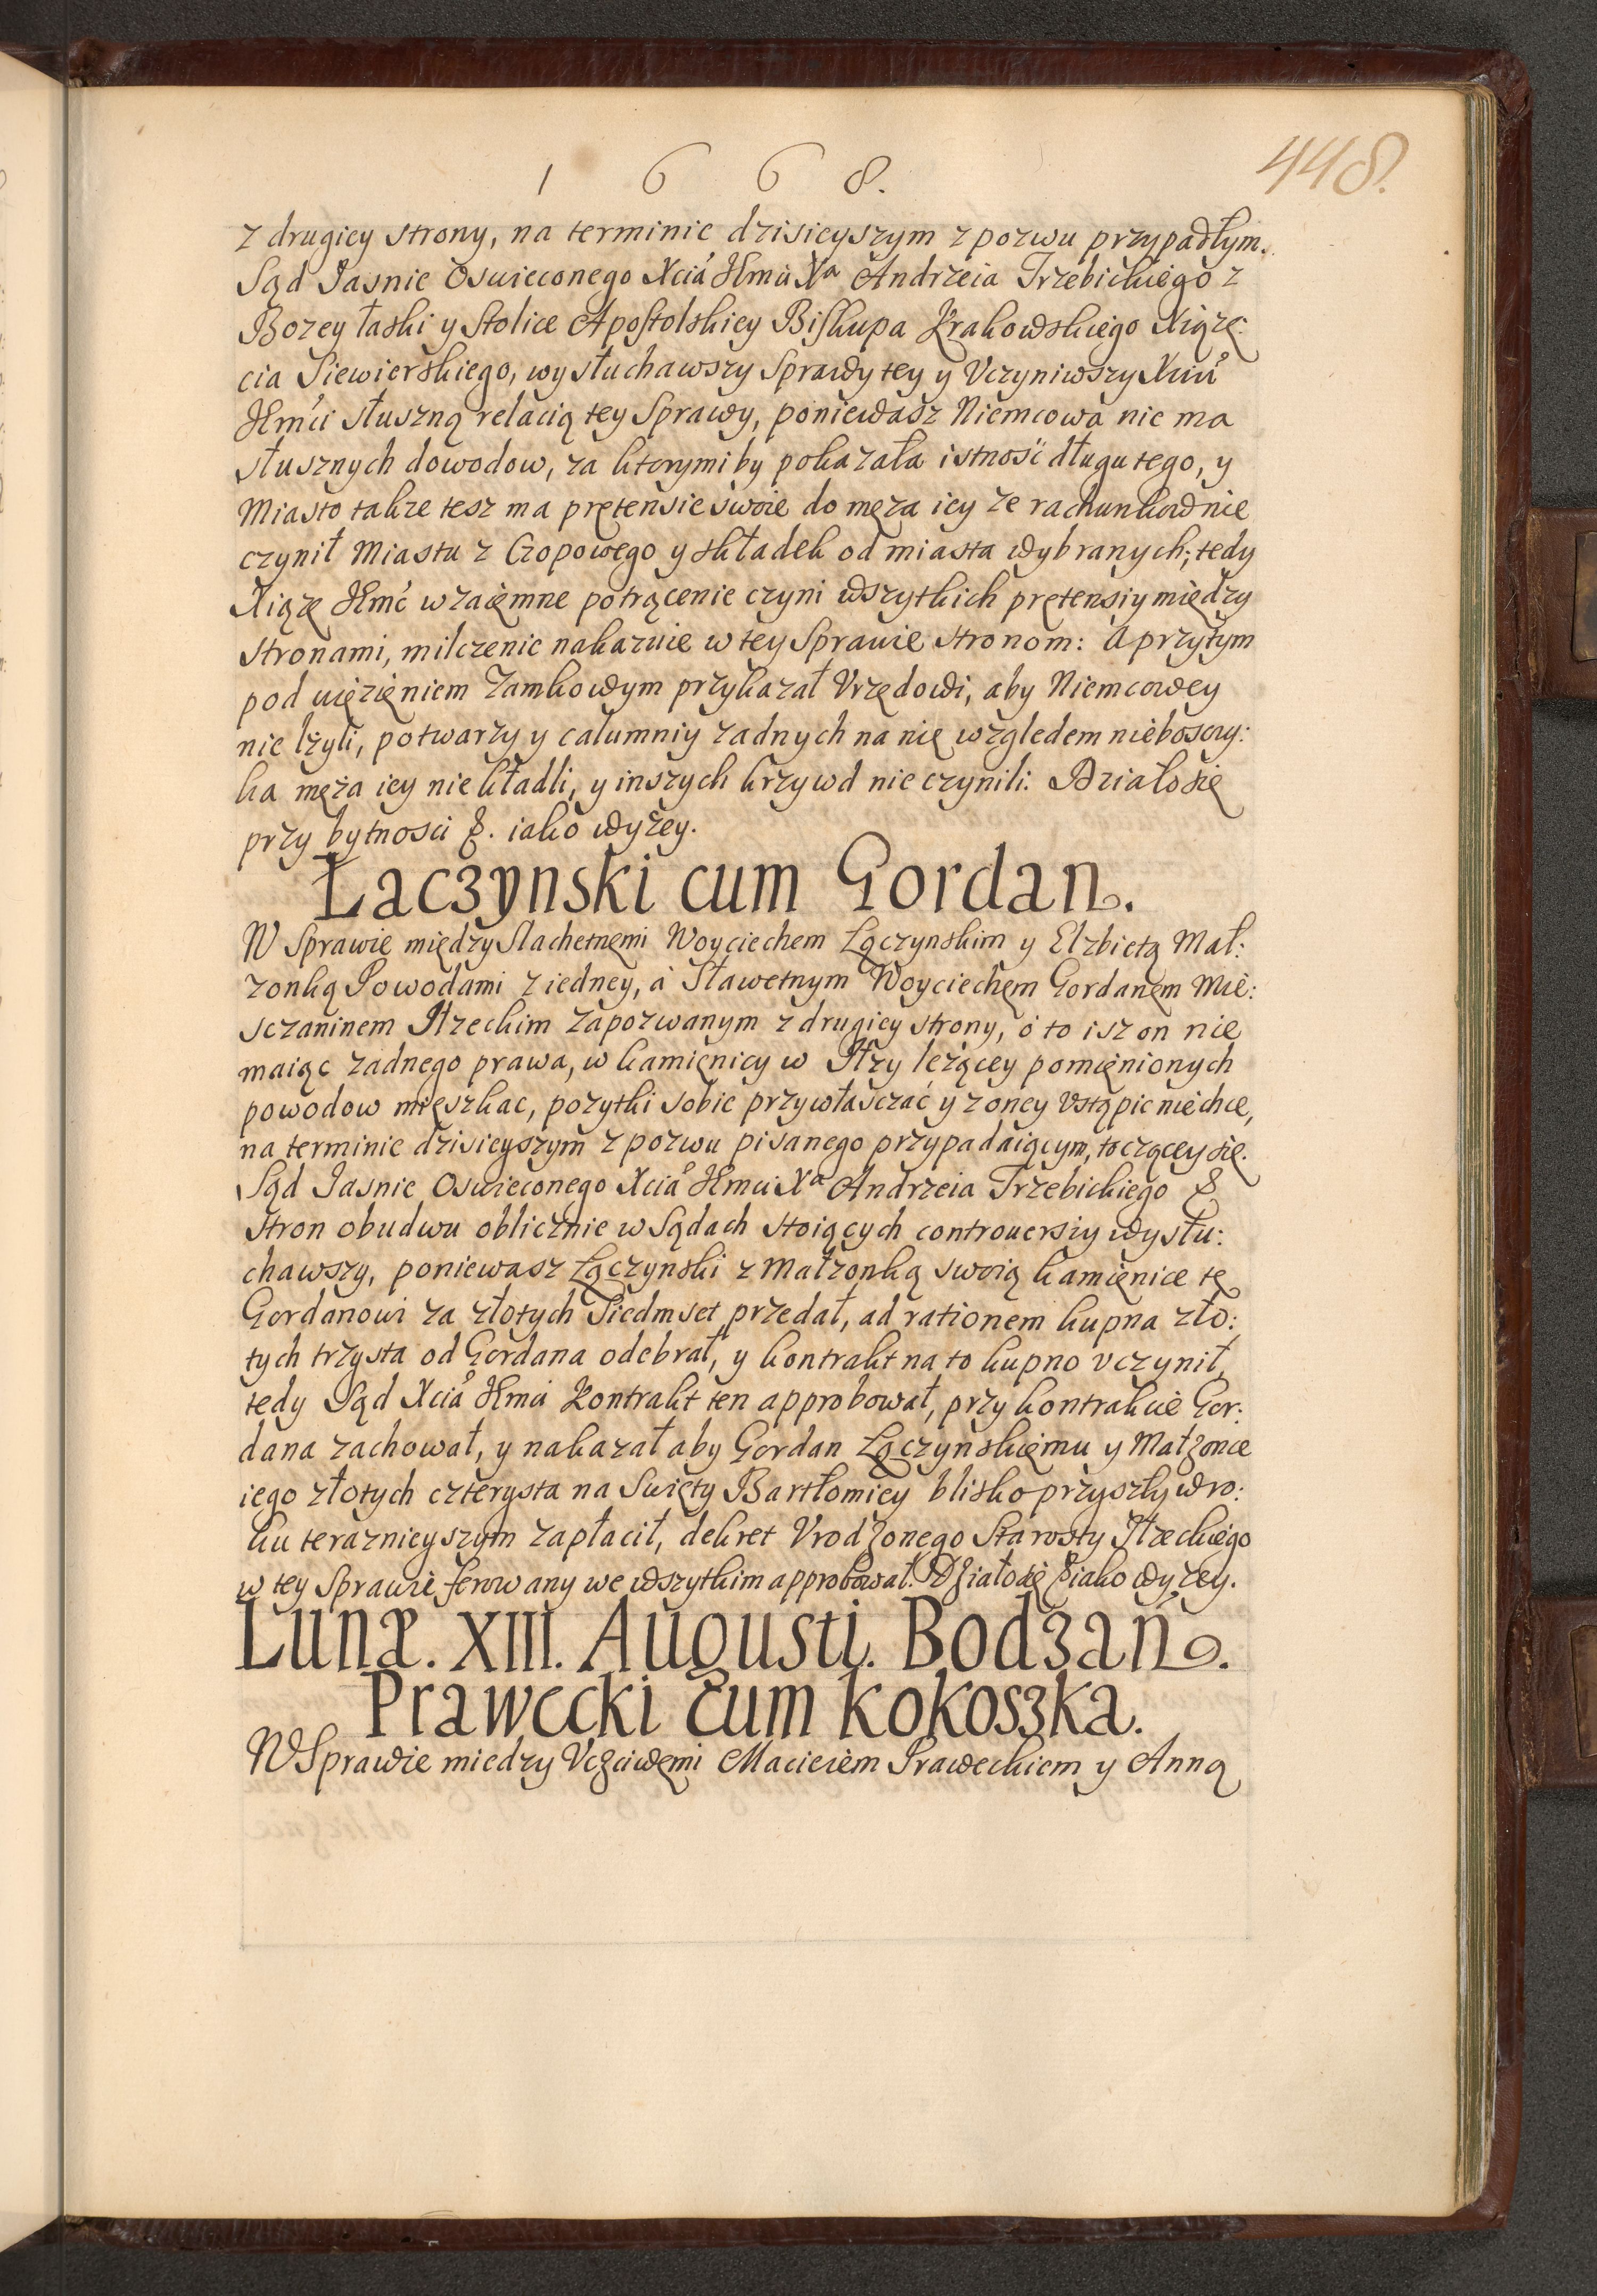 1 6 6 8.
448.
z drugiey strony, na terminie dzisieyszym z pozwu przypadłym.
Sąd Jasnie Oswieconego Xcia Jmci Xa Andrzeia Trzebickiego z
Bozey łaski y Stolice Apostolskiey Biskupa Krakowskiego Xiążę:
cia Siewierskiego, wysłuchawszy Sprawy tey y Vczyniwszy Xciu
Jmci słuszną relacią tey Sprawy, poniewasz Niemcowa nie ma
słusznych dowodow, za ktorymi by pokazała istnosć długu tego, y
Miasto takze tesz ma pretensie swoie do męza iey ze rachunkow nie
czynił Miastu z Czopowego y składek od miasta wybranych; tedy
Xiąże Jmć wzaiemne potrącenie czyni wszytkich pretensiy między
stronami, milczenie nakazuie w tey Sprawie stronom: A przytym
pod więzieniem Zamkowym przykazał Vrzędowi, aby Niemcowey
nie lżyli, potwarzy y calumniy zadnych na nię względem niebosczy:
ka męża iey nie kładli, y inszych krzywd nie czynili. Działo się
przy bytnosci &. iako wyżey.
Łaczynski cum Gordan.
W Sprawie między Slachetnemi Woyciechem Łączynskim y Elzbietą Mał:
zonką Powodami z iedney, á Sławetnym Woyciechem Gordanem Mie:
sczaninem Iłzeckim Zapozwanym z drugiey strony, o to isz on nie
maiąc zadnego prawa, w kamienicy w Iłzy leżącey pomienionych
powodow mieszkac, pozytki sobie przywłasczać y z oney Vstąpic niechce,
na terminie dzisieyszym z pozwu pisanego przypadaiącym, toczącey się.
Sąd Jasnie Oswieconego Xcia Jmci Xa Andrzeia Trzebickiego &
Stron obudwu oblicznie w Sądach stoiących controuersiy wysłu:
chawszy, poniewasz Łączynski z Małzonką swoią kamienice tę
Gordanowi za złotych Siedmset przedał, ad rationem kupna zło:
tych trzysta od Gordana odebrał, y kontrakt na to kupno vczynił,
tedy Sąd Xcia Jmci Kontrakt ten approbował, przy kontrakcie Gor:
dana zachował, y nakazał aby Gordan Łączyńskiemu y Małzonce
iego złotych czterysta na Swięty Bartłomiey blisko przyszły w ro:
ku teraznieyszym zapłacił, dekret Vrodzonego Starosty Iłzeckiego
w tey Sprawie ferowany we wszytkim approbował. Działosię & iako wyżey.
Lunæ. XIII. Augusti. Bodzan.
Prawecki cum Kokoszka.
W Sprawie miedzy Vczciwemi Macieiem Praweckiem y Anną